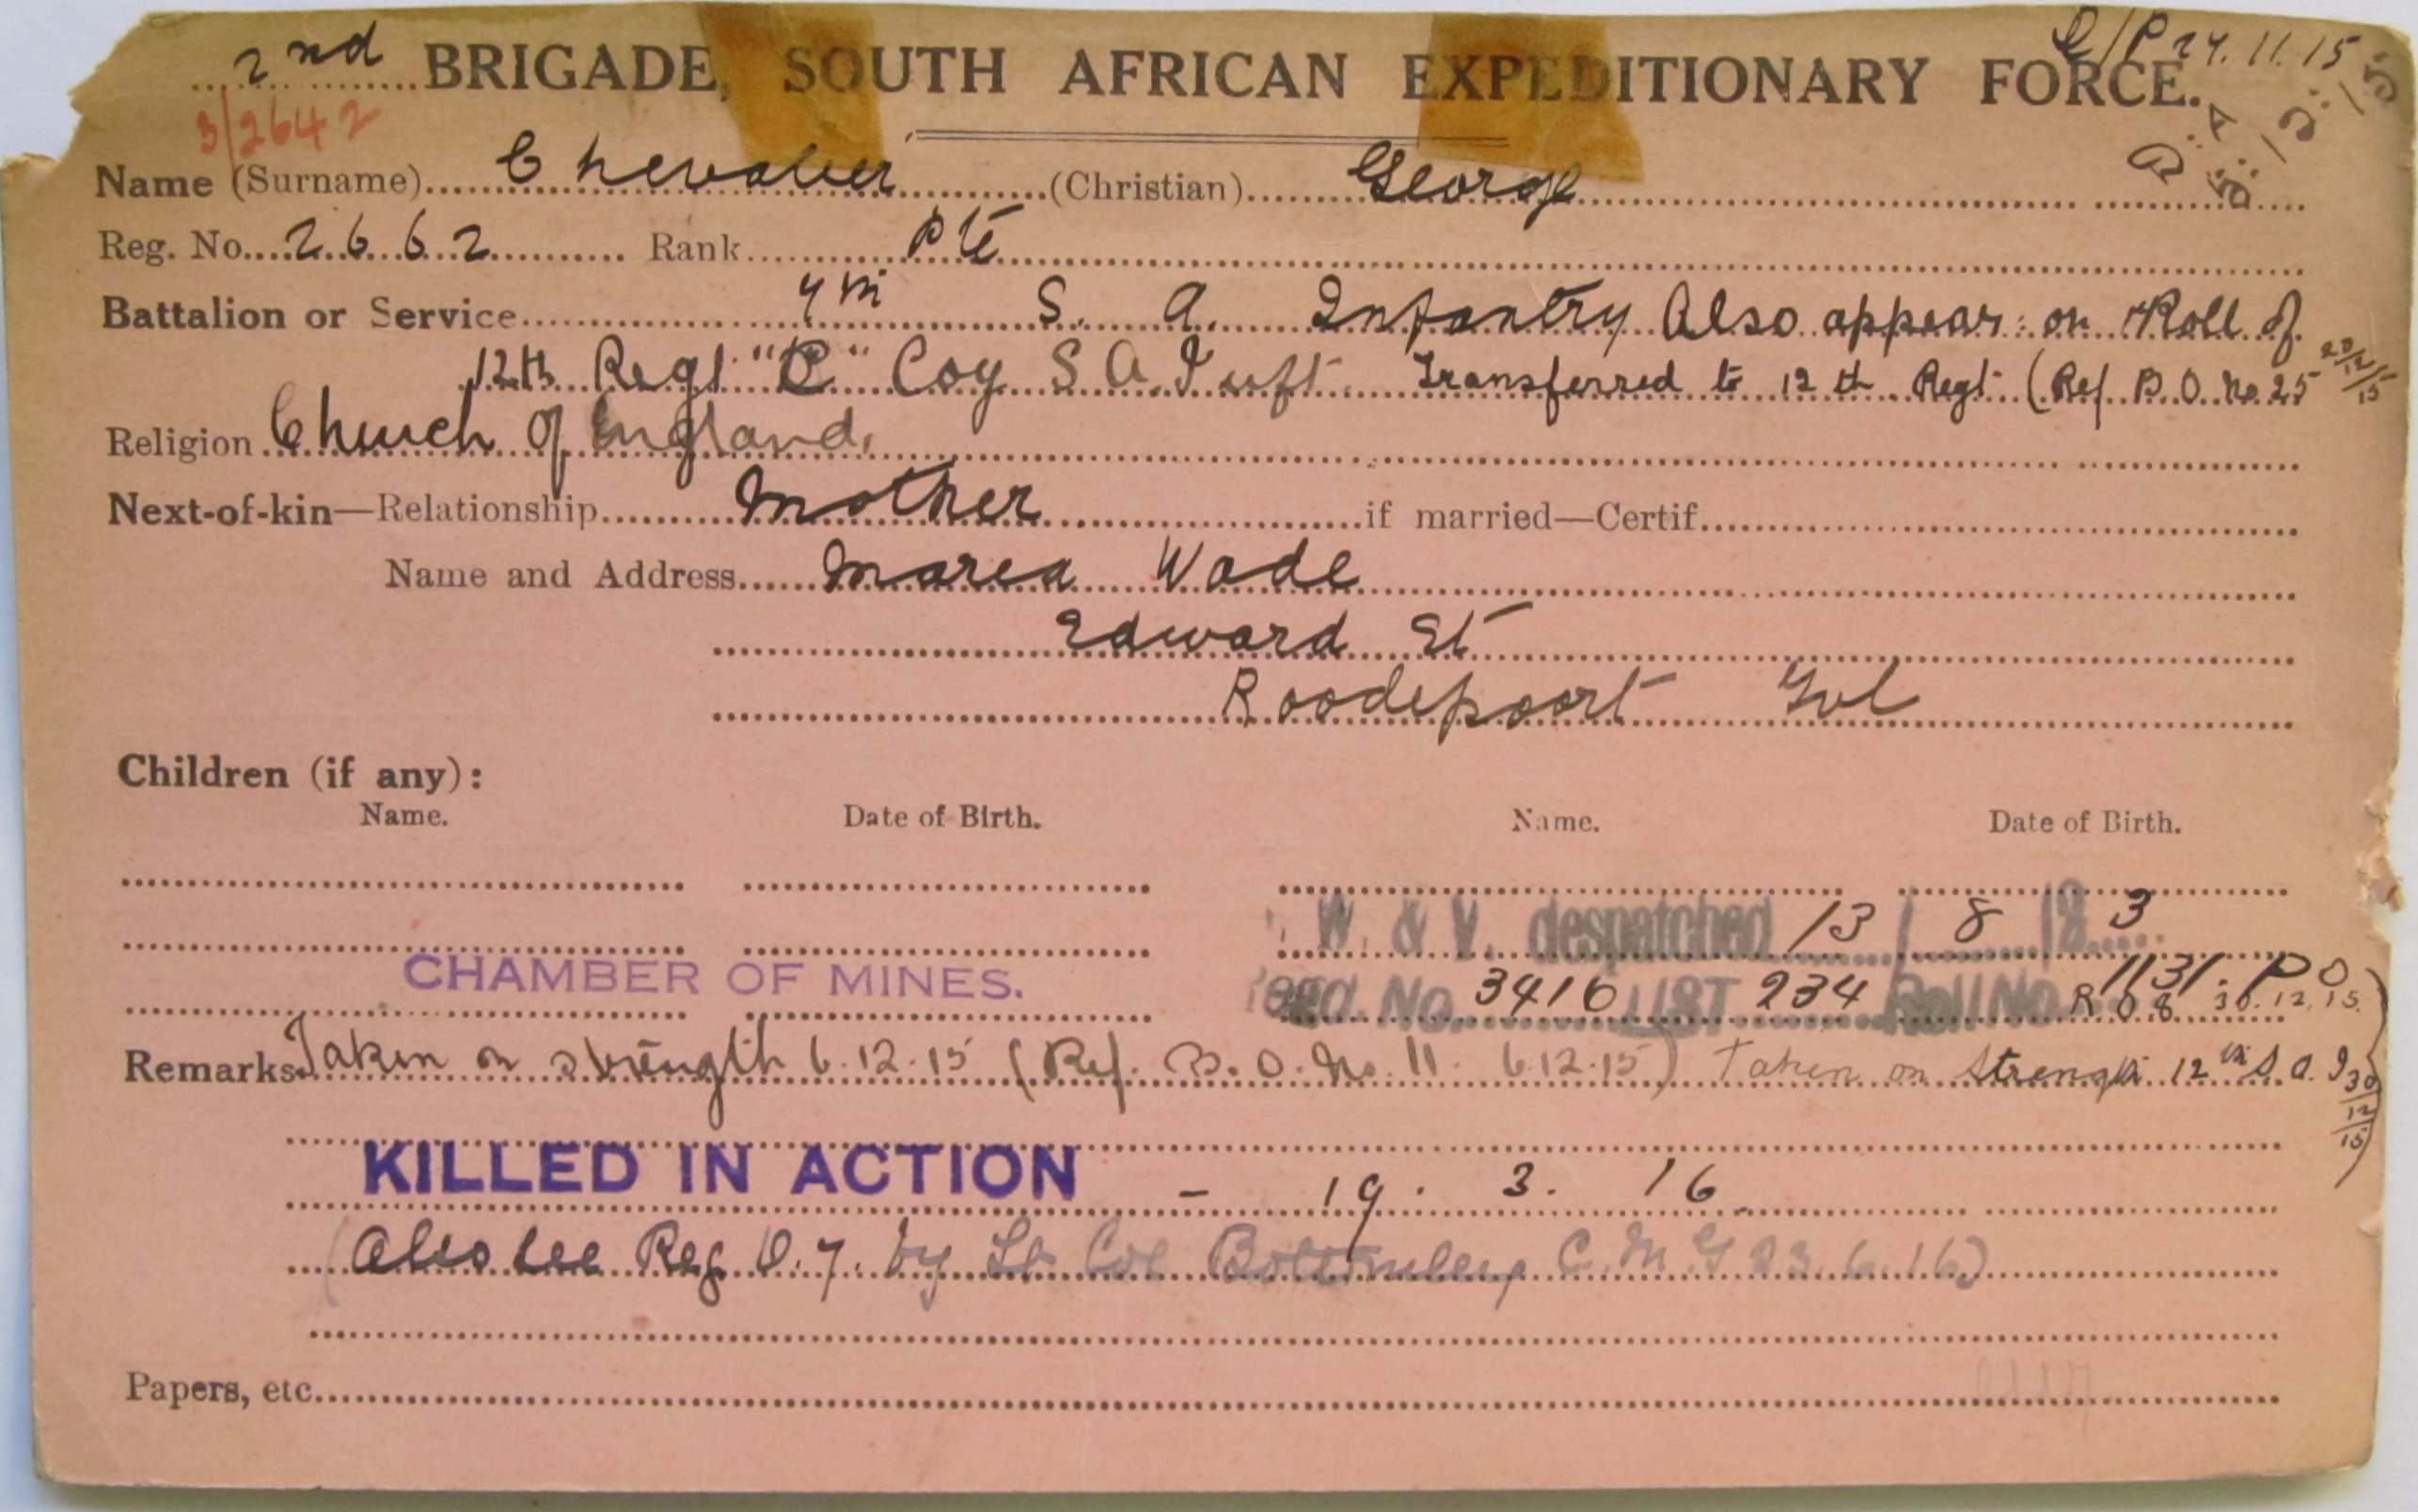 2nd BRIGADE, SOUTH AFRICAN EXPEDITIONARY FORCE.
D/P 27.11.15
3/2642
Name (Surname) Chevalier (Christian) George
Reg. No. 2662 Rank Pte
Battalion or Service 7th S. A. Infantry Also appear: on Roll of
12th Regt "C" Coy S A I Transferred to 12th Regt (Ref. B.O. No 25 28/12/15
Religion Church of England.
Next-of-kin—Relationship Mother if married—Certif.
Name and Address Marea Wade
Edward St
Roodepoort Tvl
Children (if any):
Name. Date of Birth. Name. Date of Birth.
W. & V. despatched 13 / 8 / 23
CHAMBER OF MINES.
Regd. No. 3416 LIST 234 Roll No. 1131. P O
R O 8 30.12.15.
Remarks Taken on strength 6.12.15 (Ref. B.O. No. 11. 6.12.15) Taken on Strength 12th S. A. I 30/12/15
KILLED IN ACTION - 19. 3. 16.
(Also see Reg O. 7. by Lt Col Bottomley C.M.G 23.6.16)
Papers, etc.